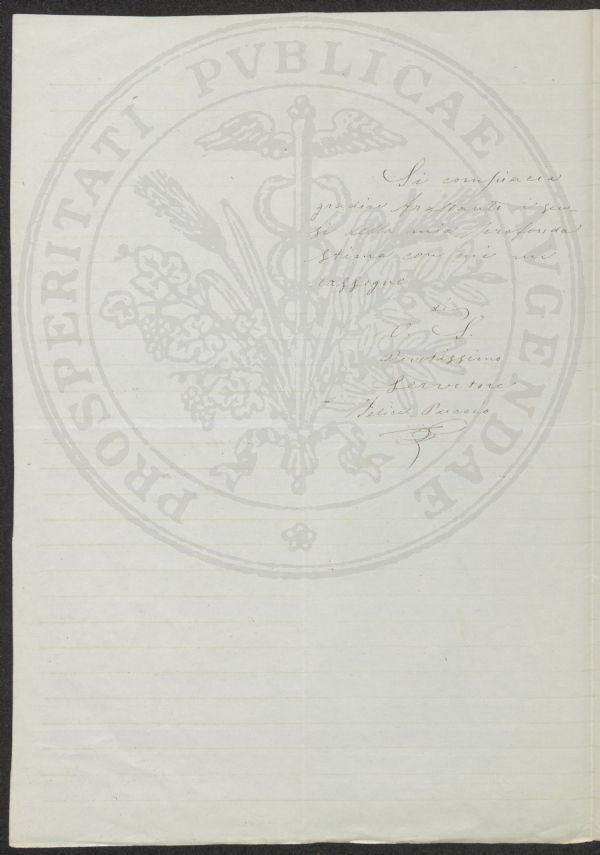 PROSPERITATI PVBLICAE AVGENDAE
Si compiaccia
gradire frattanti i sen-
si della mia profonda
stima con cui mi
rassegno
di
V. S.
Devotissimo
Servitore
Felice Puccio